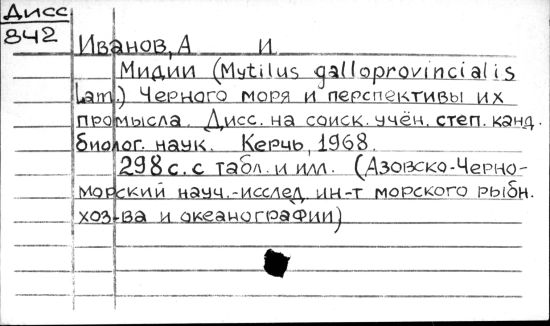 Дисс
842
Иванов, А И
Мидии (Mytilus galloprovincialis
Lam.) Черного моря и перспективы их
промысла. Дисс. на соиск. учён. степ. канд.
биолог. наук. Керчь, 1968.
298 с. с табл. и илл. (Азовско-Черно-
морский науч.-исслед. ин-т морского рыбн.
хоз-ва и океанографии)